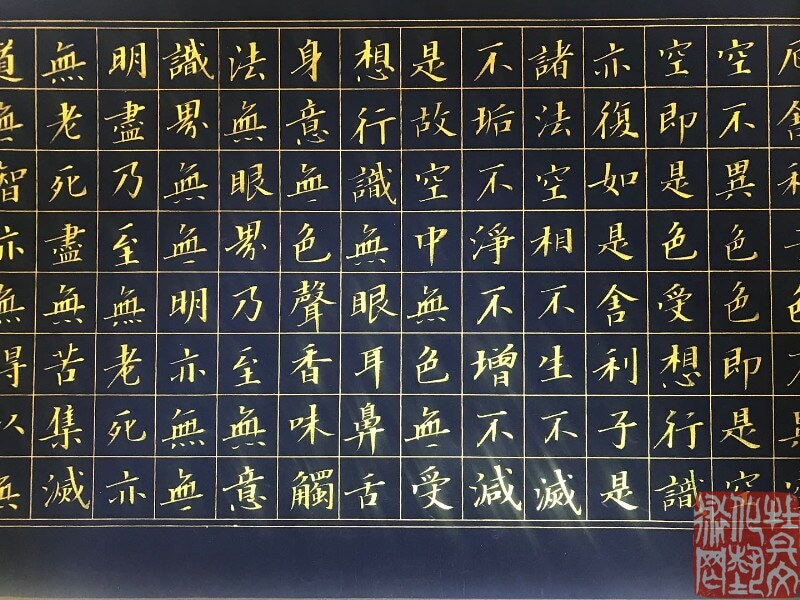 厄舍利子色不異空
空不異色色即是空
空即是色受想行識
亦復如是舍利子是
諸法空相不生不滅
不垢不淨不增不減
是故空中無色無受
想行識無眼耳鼻舌
身意無色聲香味觸
法無眼界乃至無意
識界無無明亦無無
明盡乃至無老死亦
無老死盡無苦集滅
道無智亦無得以無